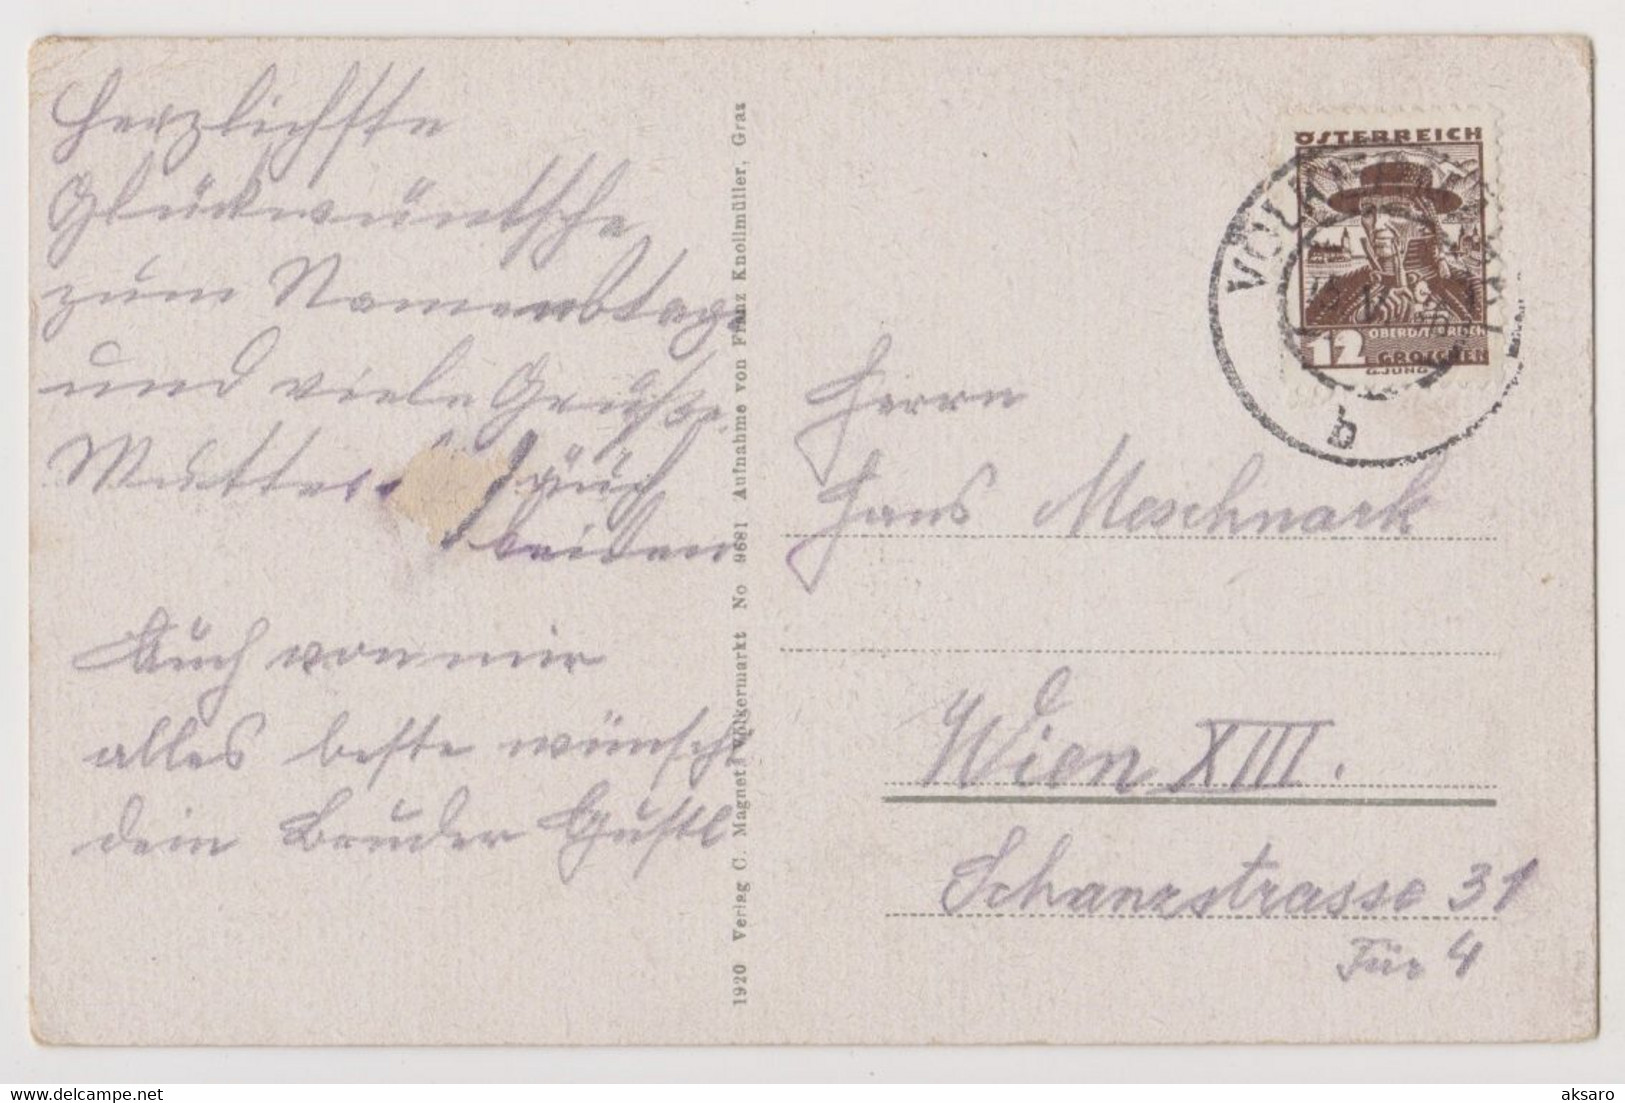 Herzlichste
Glückwüntsche
zum Namenstage
und viele Grüsse.
Mutter
Euch
beiden
Auch von mir
alles beste wünscht
dein Bruder Gustl
1920 Verlag C. Magnet, Völkermarkt No 9681 Aufnahme von Franz Knollmüller, Graz
ÖSTERREICH
OBERÖSTERREICH
12 GROSCHEN
G.JUNG
b
Herrn
Hans Moschnark
Wien XIII.
Schanzstrasse 31
Tür 4
aksaro